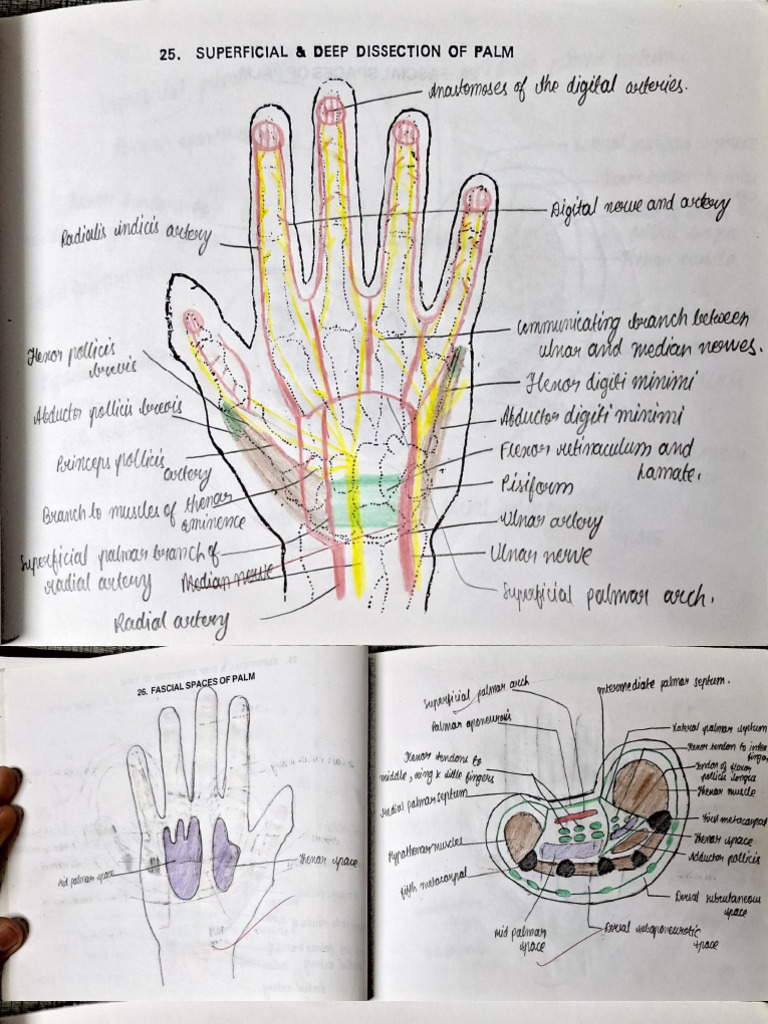 25. SUPERFICIAL & DEEP DISSECTION OF PALM
Anastomoses of the digital arteries.
Digital nerve and artery
Radialis indicis artery
Communicating branch between
ulnar and median nerves.
Flexor pollicis
brevis
Flexor digiti minimi
Abductor pollicis brevis
Abductor digiti minimi
Flexor retinaculum and
hamate.
Princeps pollicis
artery
Pisiform
Branch to muscles of thenar
eminence
Ulnar artery
Superficial palmar branch of
radial artery
Median nerve
Ulnar nerve
Superficial palmar arch.
Radial artery
26. FASCIAL SPACES OF PALM
Mid palmar space
Thenar space
Superficial palmar arch
Intermediate palmar septum.
Palmar aponeurosis
Lateral palmar septum
Flexor tendons to
middle, ring & little fingers
Flexor tendon to index
finger
Tendon of flexor
pollicis longus
Medial palmar septum
Thenar muscle
First metacarpal
Hypothenar muscles
Thenar space
Adductor pollicis
Fifth metacarpal
Dorsal subcutaneous
space
Mid palmar
space
Dorsal subaponeurotic
space